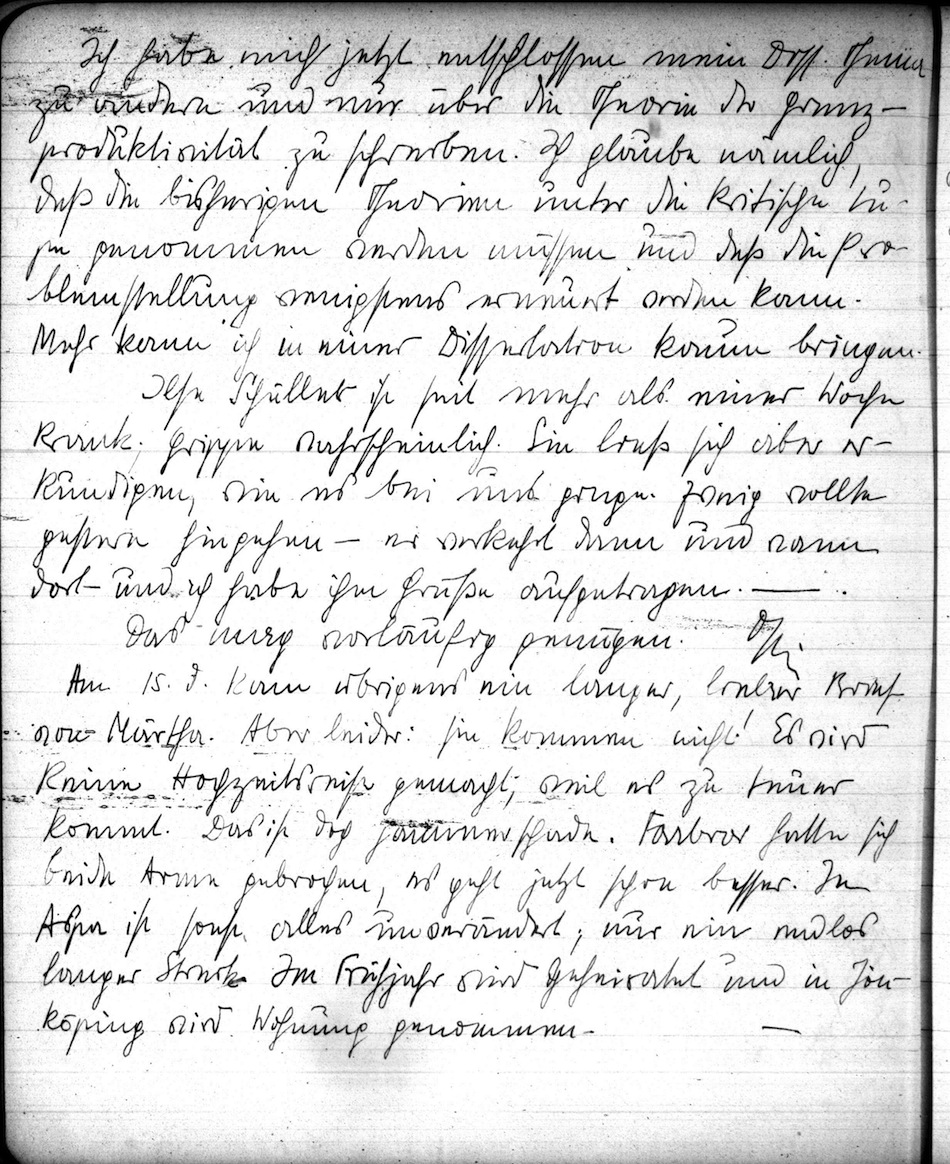 Ich habe mich jetzt entschlossen mein Diss. Thema
zu ändern und nur über die Theorie der Grenz-
produktivität zu schreiben. Ich glaube nämlich,
daß die bisherigen Theorien unter die kritische Lu-
pe genommen werden müssen und daß die Pro-
blemstellung wenigstens erneuert werden kann.
Mehr kann ich in einer Dissertation kaum bringen.
Ilse Schüller ist seit mehr als einer Woche
krank, Grippe wahrscheinlich. Sie ließ sich aber er-
kundigen, wie es bei uns ginge. Zweig wollte
gestern hingehen – er verkehrt dann und wann
dort – und ich habe ihm Grüße aufgetragen. —— .
Das mag vorläufig genügen.
Am 15. d. kam übrigens ein langer, lieber Brief
von Märtha. Aber leider: sie kommen nicht! Es wird
keine Hochzeitsreise gemacht, weil es zu teuer
kommt. Das ist doch jammerschade. Farbror hatte sich
beide Arme gebrochen, es geht jetzt schon besser. In
Aspa ist sonst alles unverändert; nur ein endlos
langer Streik. Im Frühjahr wird geheiratet und in Jön-
köping wird Wohnung genommen. —